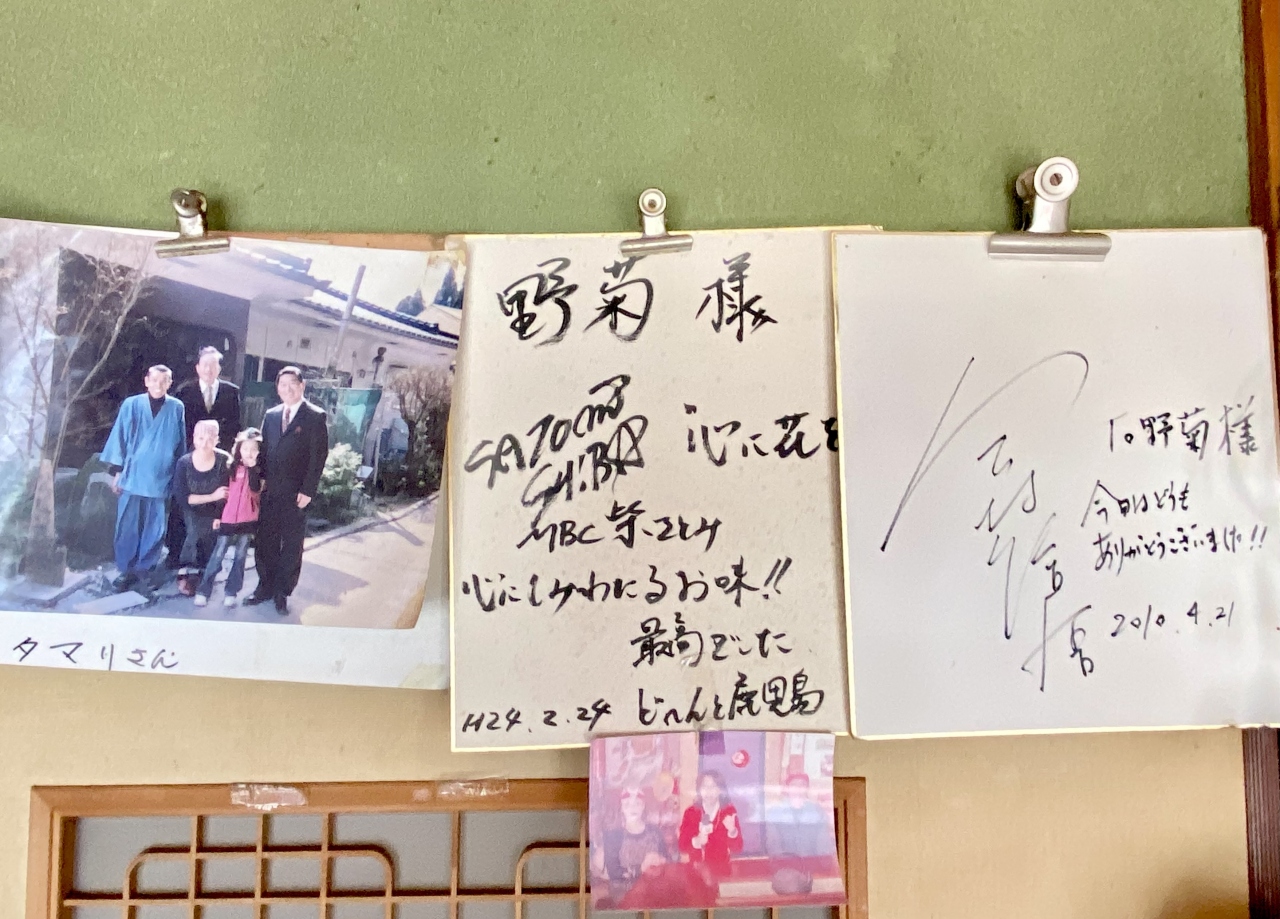 タマリさん
野菊 様
SATOMI
SHIBA
心に花を
MBC 柴さとみ
心にしみわたるお味!!
最高でした
H24.2.24 どーんと鹿児島
To 野菊様
今日はどうも
ありがとうございました!!
2010.4.21